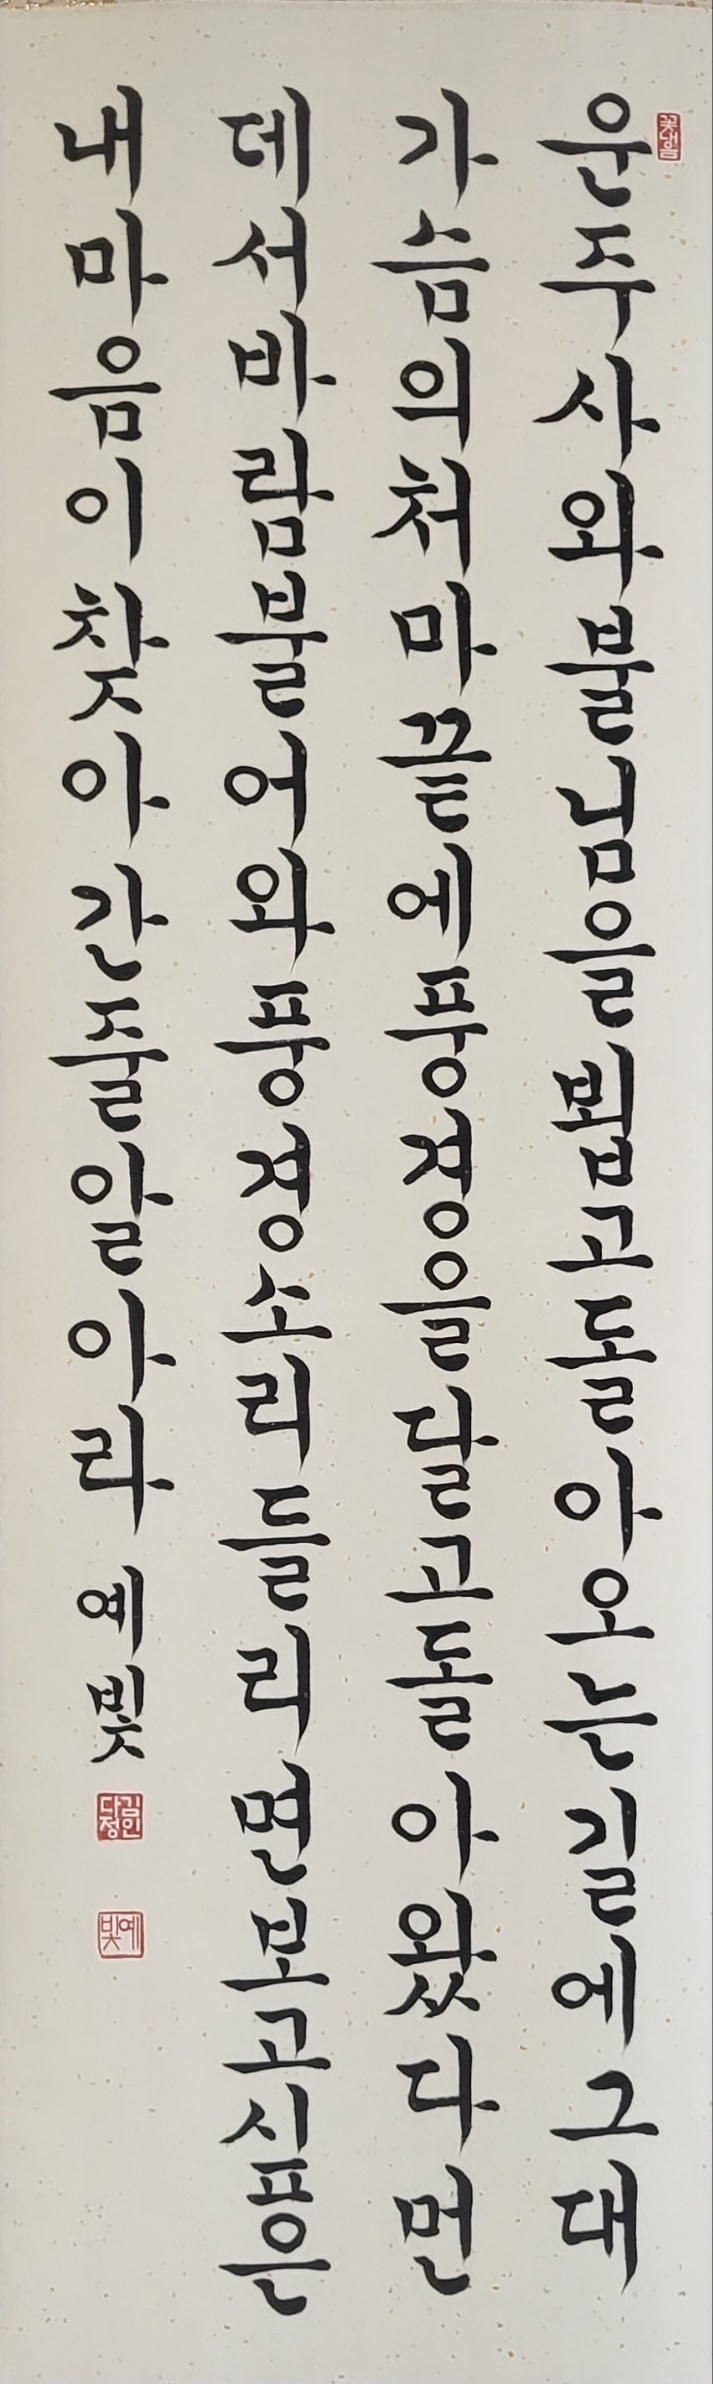 꽃내음
운주사와불님을뵙고돌아오는길에그대
가슴의처마끝에풍경을달고돌아왔다먼
데서바람불어와풍경소리들리면보고싶은
내마음이찾아간줄알아라 예빛
김인
다정
예빛